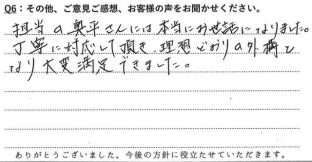 Q6:その他、ご意見ご感想、お客様の声をお聞かせください。
担当の奥平さんには本当にお世話になりました。
丁寧に対応して頂き、理想どおりの外構と
なり大変満足できました。
ありがとうございました。今後の方針に役立たせていただきます。